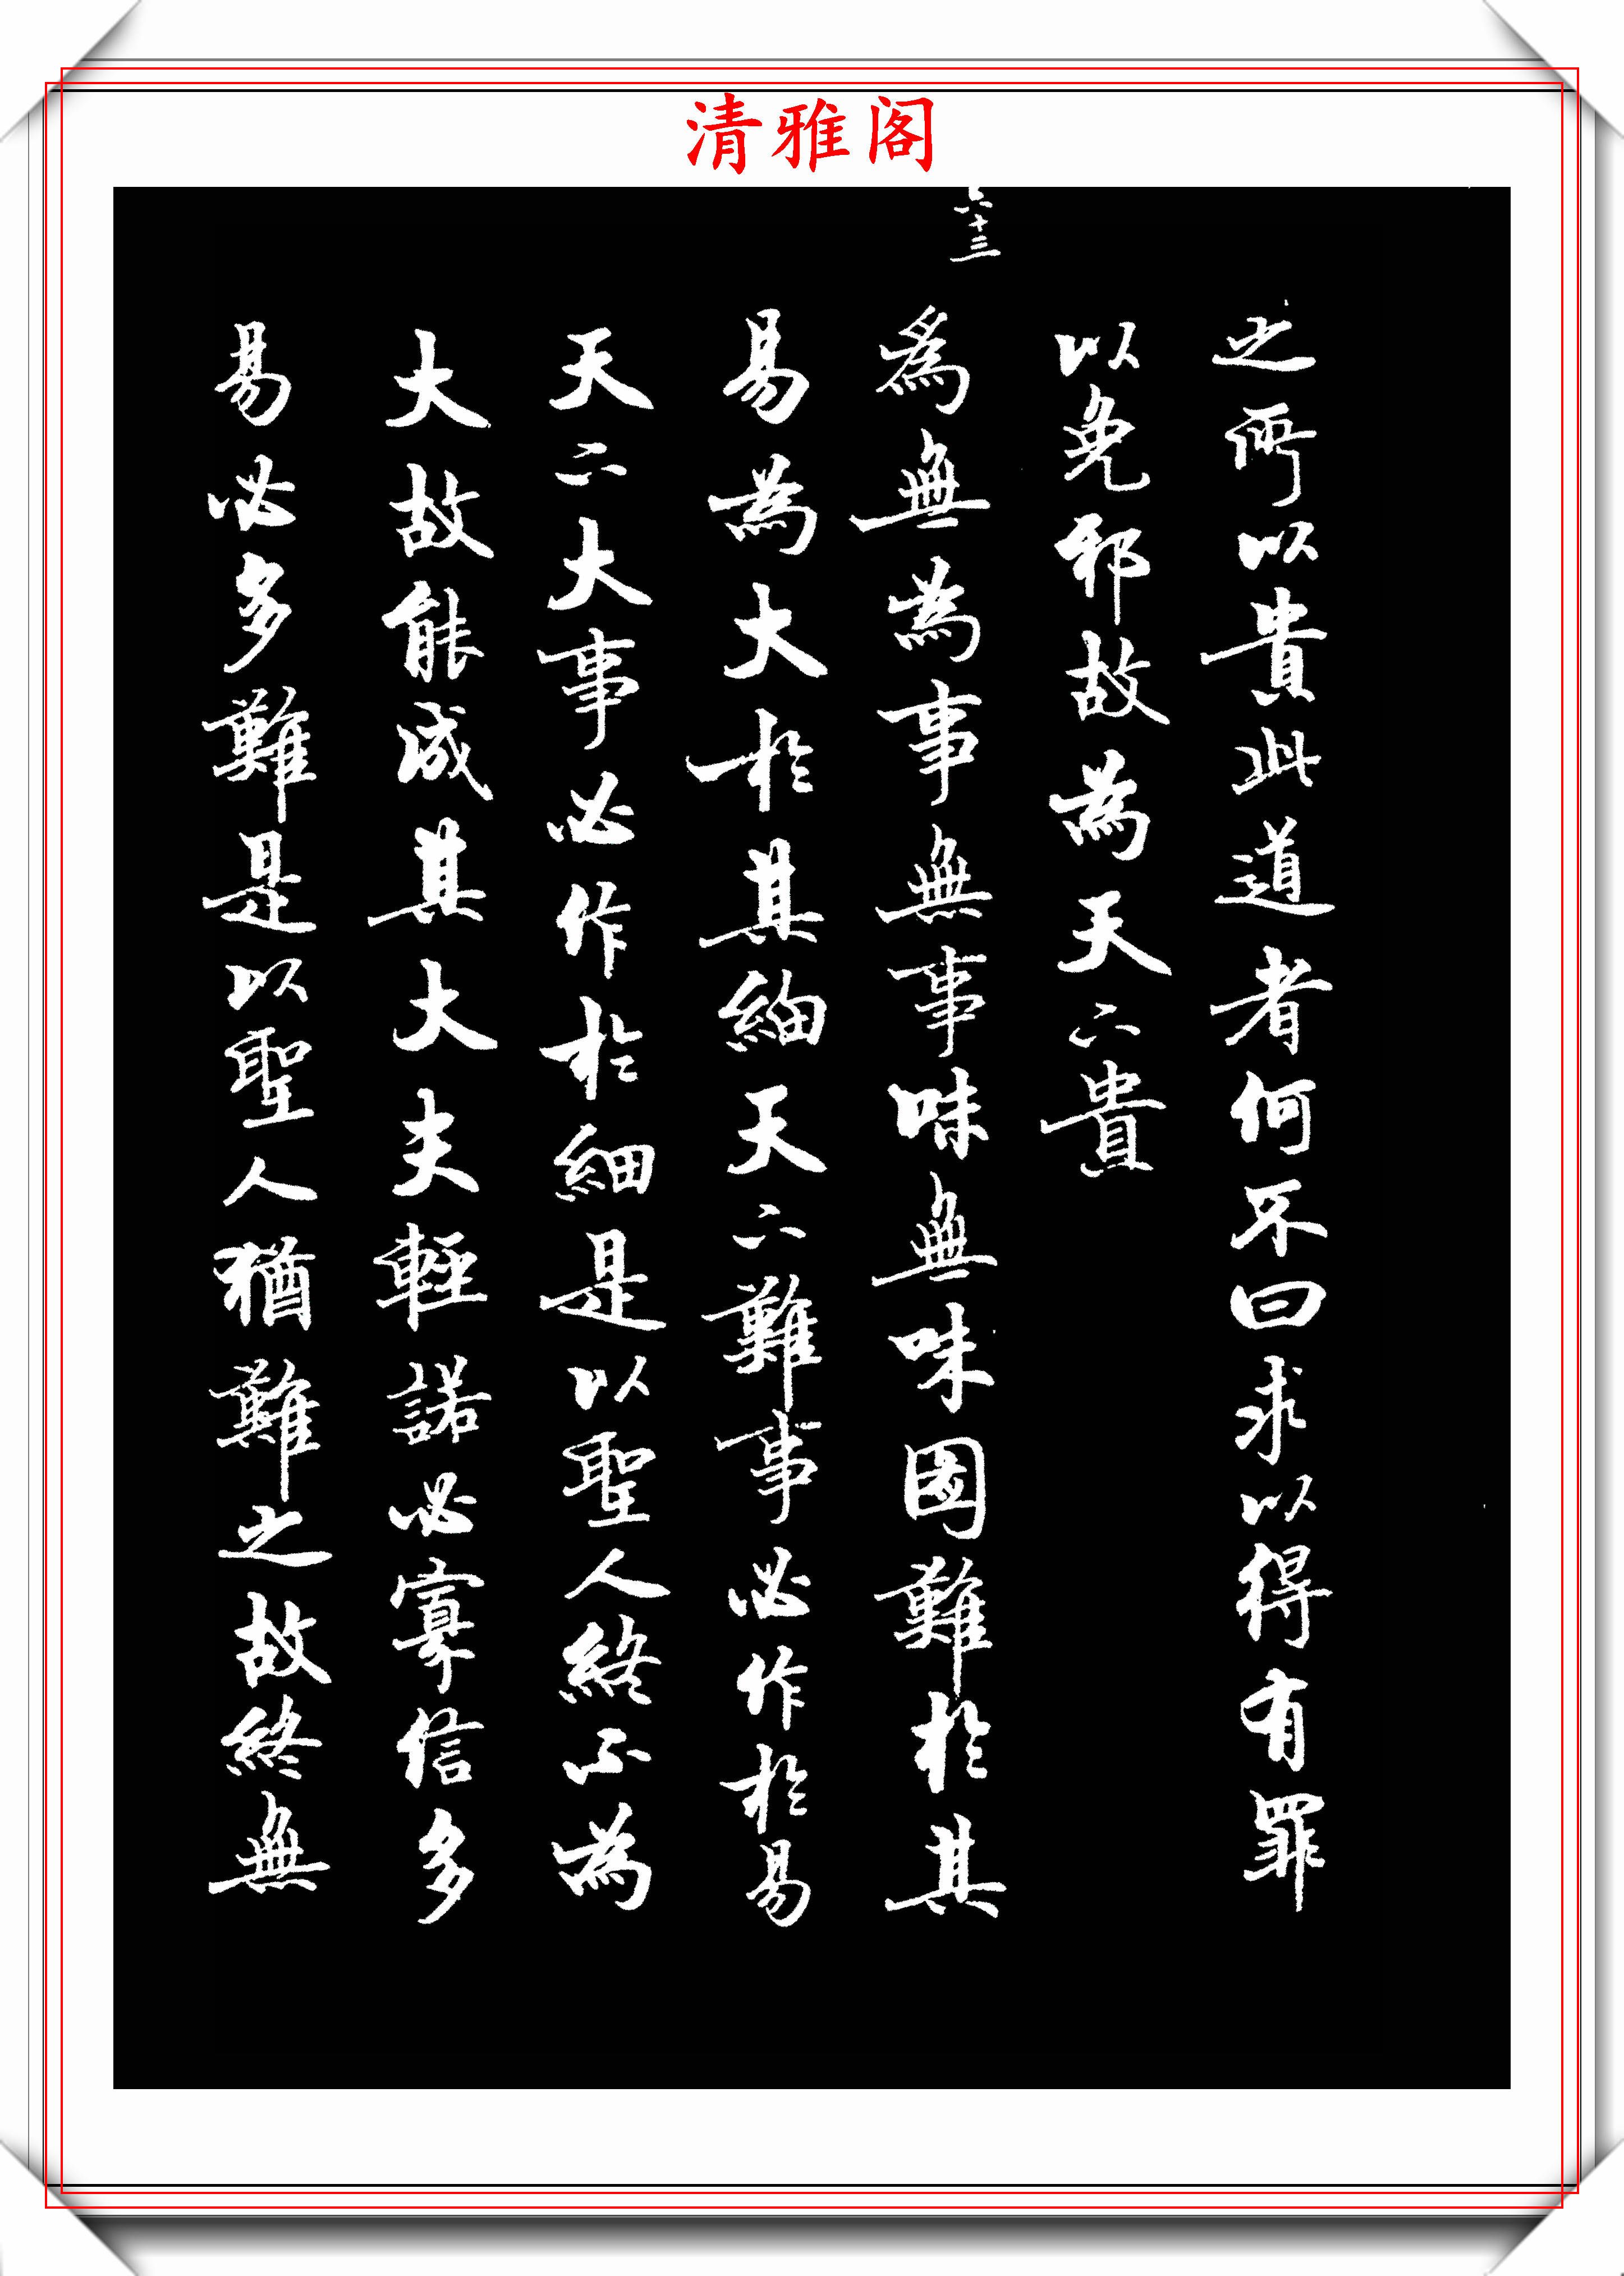 清雅阁
之所以貴此道者何不曰求以得有罪
以免邪故為天下貴
六十三
爲無為事無事味無味圖難於其
易為大於其細天下難事必作於易
天下大事必作於細是以聖人終不為
大故能成其大夫輕諾必寡信多
易必多難是以聖人猶難之故終無